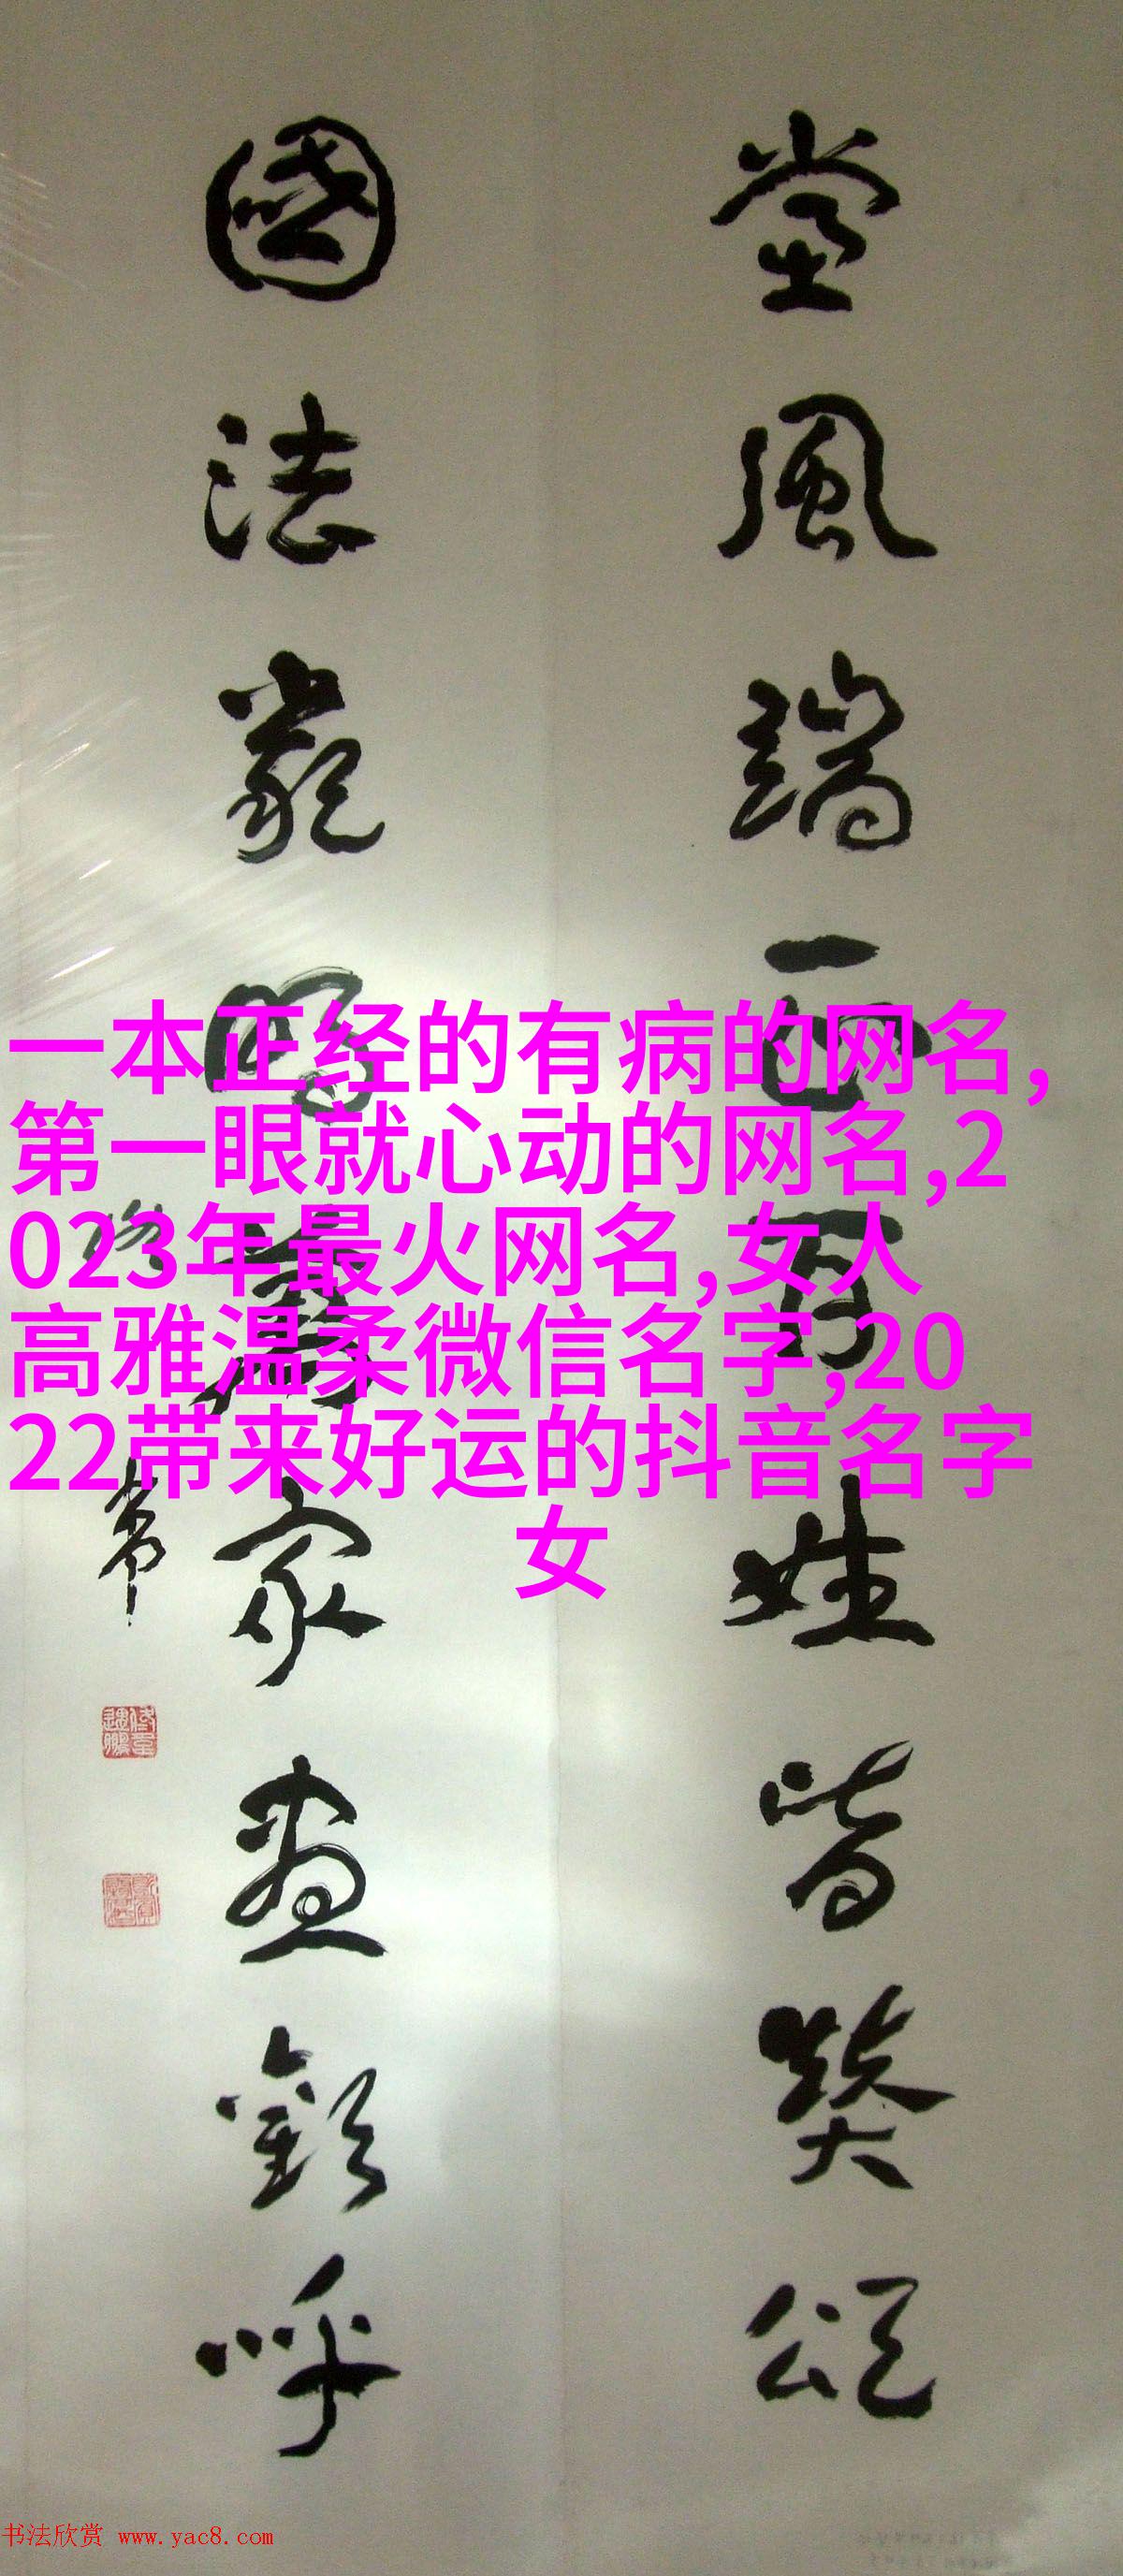 堂風端正百姓皆奬頌
國法嚴明萬家盡歡呼
一本正经的有病的网名,
第一眼就心动的网名,2
023年最火网名,女人
高雅温柔微信名字,20
22带来好运的抖音名字
女
书法欣赏 www.yac8.com